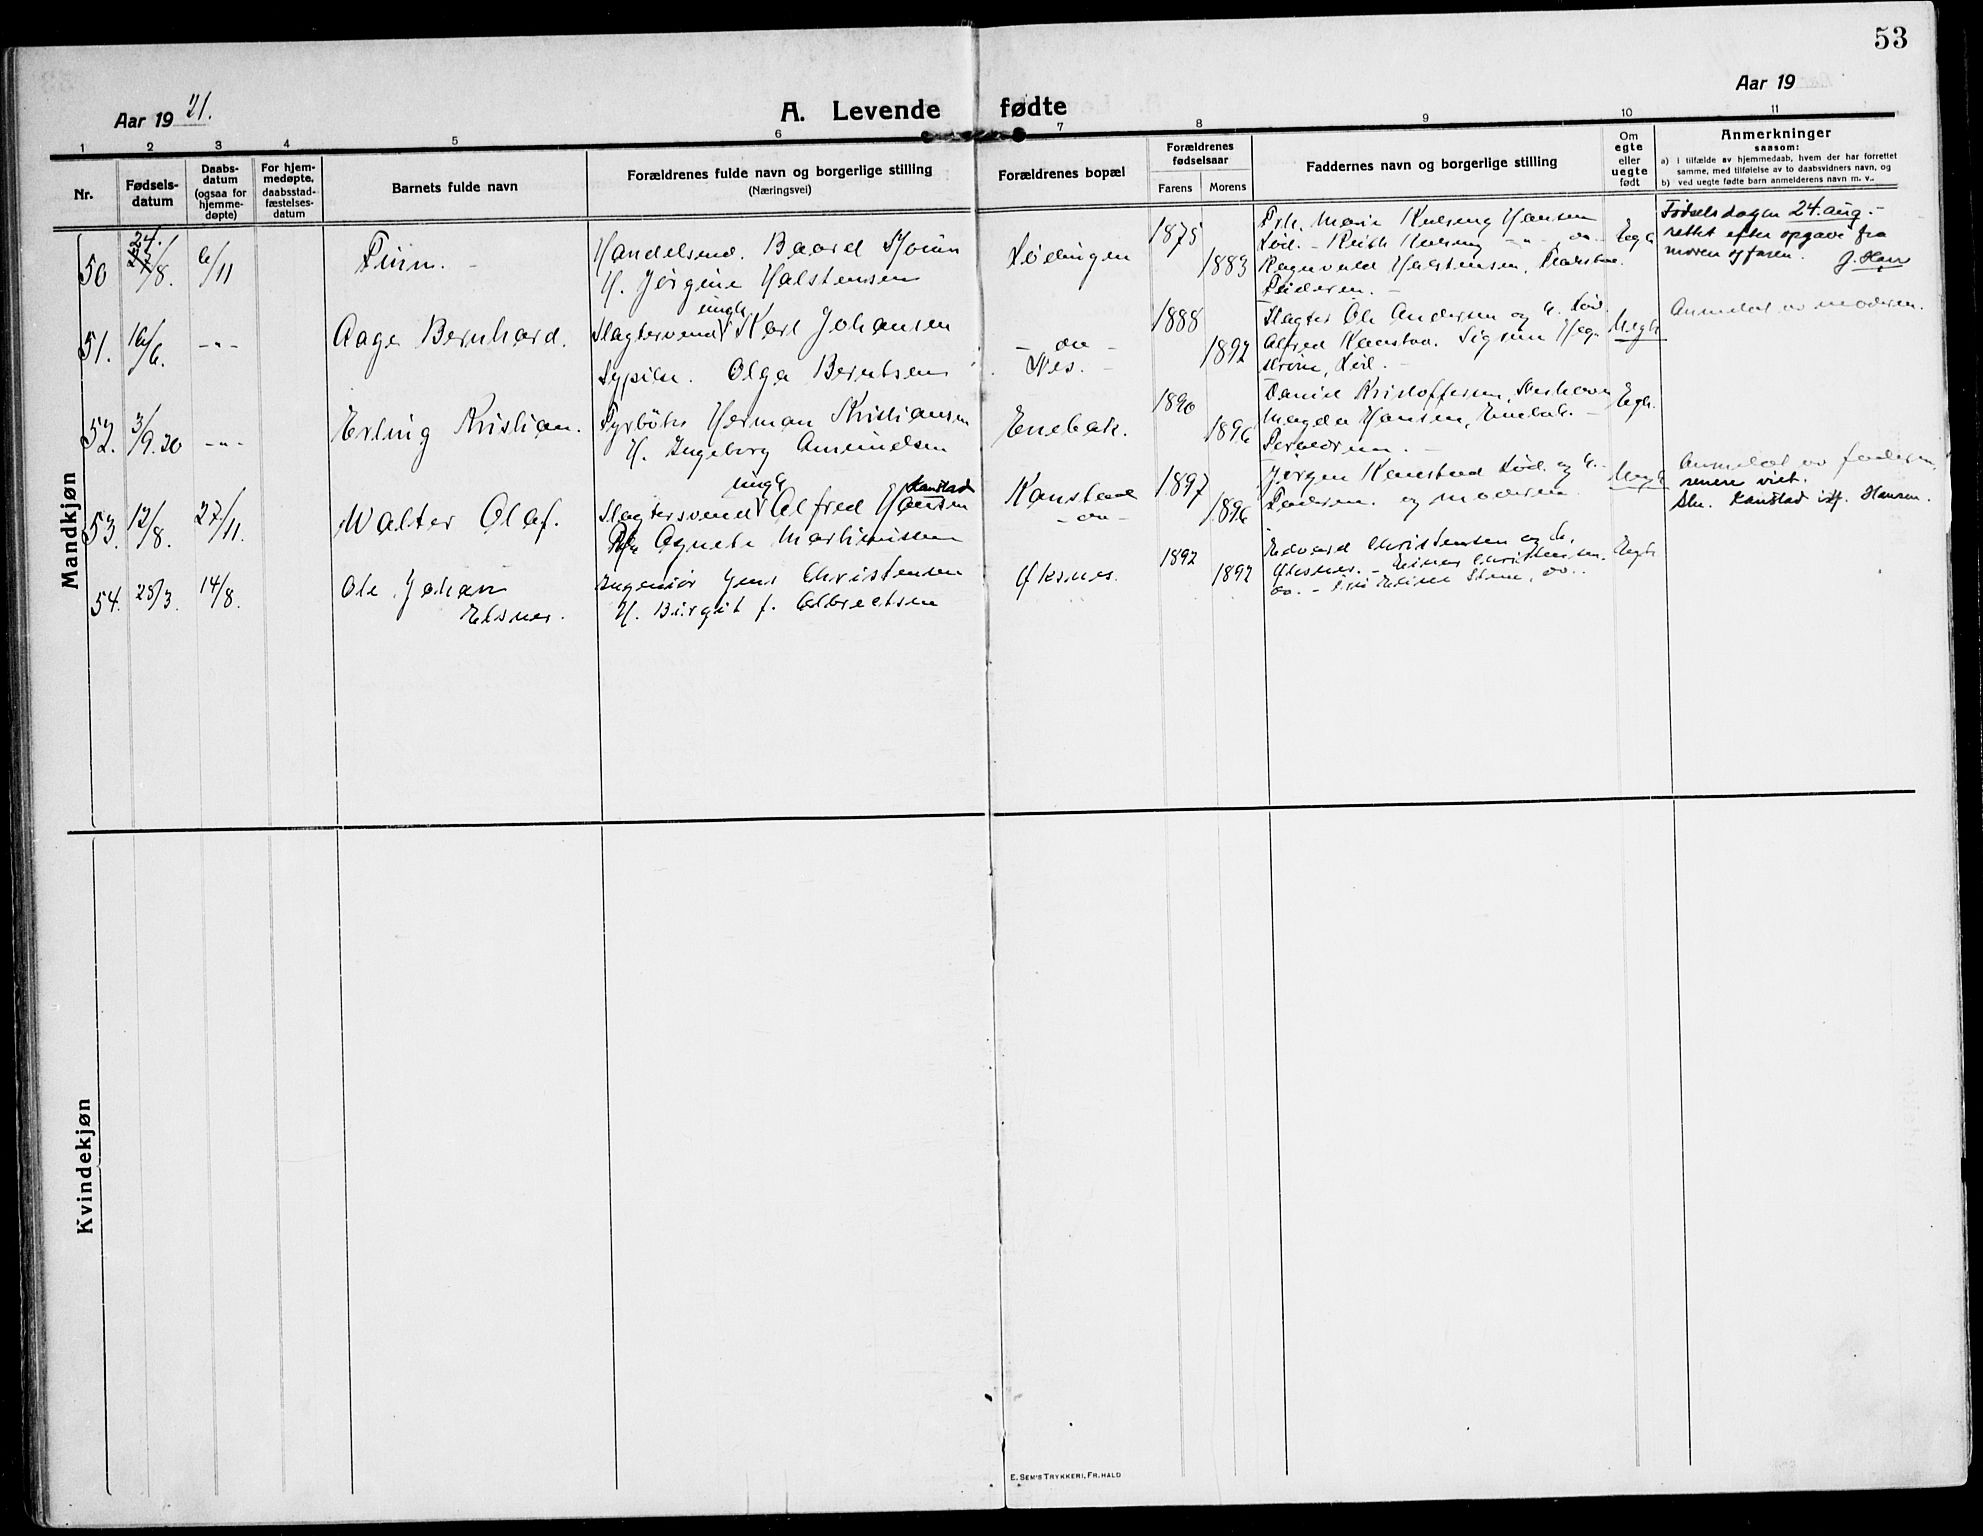 53
Aar 1921.
A. Levende fødte
Aar 19
1 2 3 4 5 6 7 8 9 10 11
Nr.
Fødsels-
datum
Daabs-
datum
(ogsaa for
hjemme-
døpte)
For hjem-
medøpte,
daabsstad-
fæstelses-
datum
Barnets fulde navn
Forældrenes fulde navn og borgerlige stilling
(Næringsvei)
Forældrenes bopæl
Forældrenes
fødselsaar
Farens Morens
Faddernes navn og borgerlige stilling
Om
egte
eller
uegte
født
Anmerkninger
saasom:
a) i tilfælde av hjemmedaab, hvem der har forrettet
samme, med tilføielse av to daabsvidners navn, og
b) ved uegte fødte barn anmelderens navn m. v..
Mandkjøn
50 24/8. 6/11 Finn.
Handelsmd. Baard
H. Jørgine Halstensen
Lødingen
1875
1883
Frk. Marie Hansen
Lød.
Ragnvald Halstensen,
Faderen.
Egte
Fødselsdagen 24. aug. -
rettet efter opgave fra
moren og faren.
51. 16/6. -"- Aage Bernhard.
ungk.
Slagtersvend Karl Johansen
Sypike. Olga Berntsen
- do -
Nes. -
1888
1892
Slagter Ole Andersen og h. Lød.
Alfred Kanstad. Sigrun
Lød. -
Uegte
Anmeldt av moderen.
52. 3/9.20 -"- Erling Kristian.
Fyrbøter Herman Kristiansen
H. Ingeborg Amundsen
Enebak.
1890
1896
Daniel Kristoffersen,
Magda Hansen, Enebak. -
Egte
53. 12/8. 27/11. Walter Olaf.
ungk. Kanstad
Slagtersvend Alfred Hansen
Agnete Martinussen
Kanstad
- do -
1897
1896
Jørgen Kanstad Lød. og h. -
Faderen og moderen.
Uegte
Anmeldt av faderen,
senere viet.
Skr. Kanstad istf. Hansen.
54. 28/3. 14/8. Ole Johan
Elsner.
Ingeniør Jens Christensen
H. Birgit f. Albrectsen
Øksnes.
1892
1892
Edvard Christensen og h.
Øksnes. - Einar Christensen.
do. -
Egte
Kvindekjøn
E. SEM'S TRYKKERI, FR.HALD